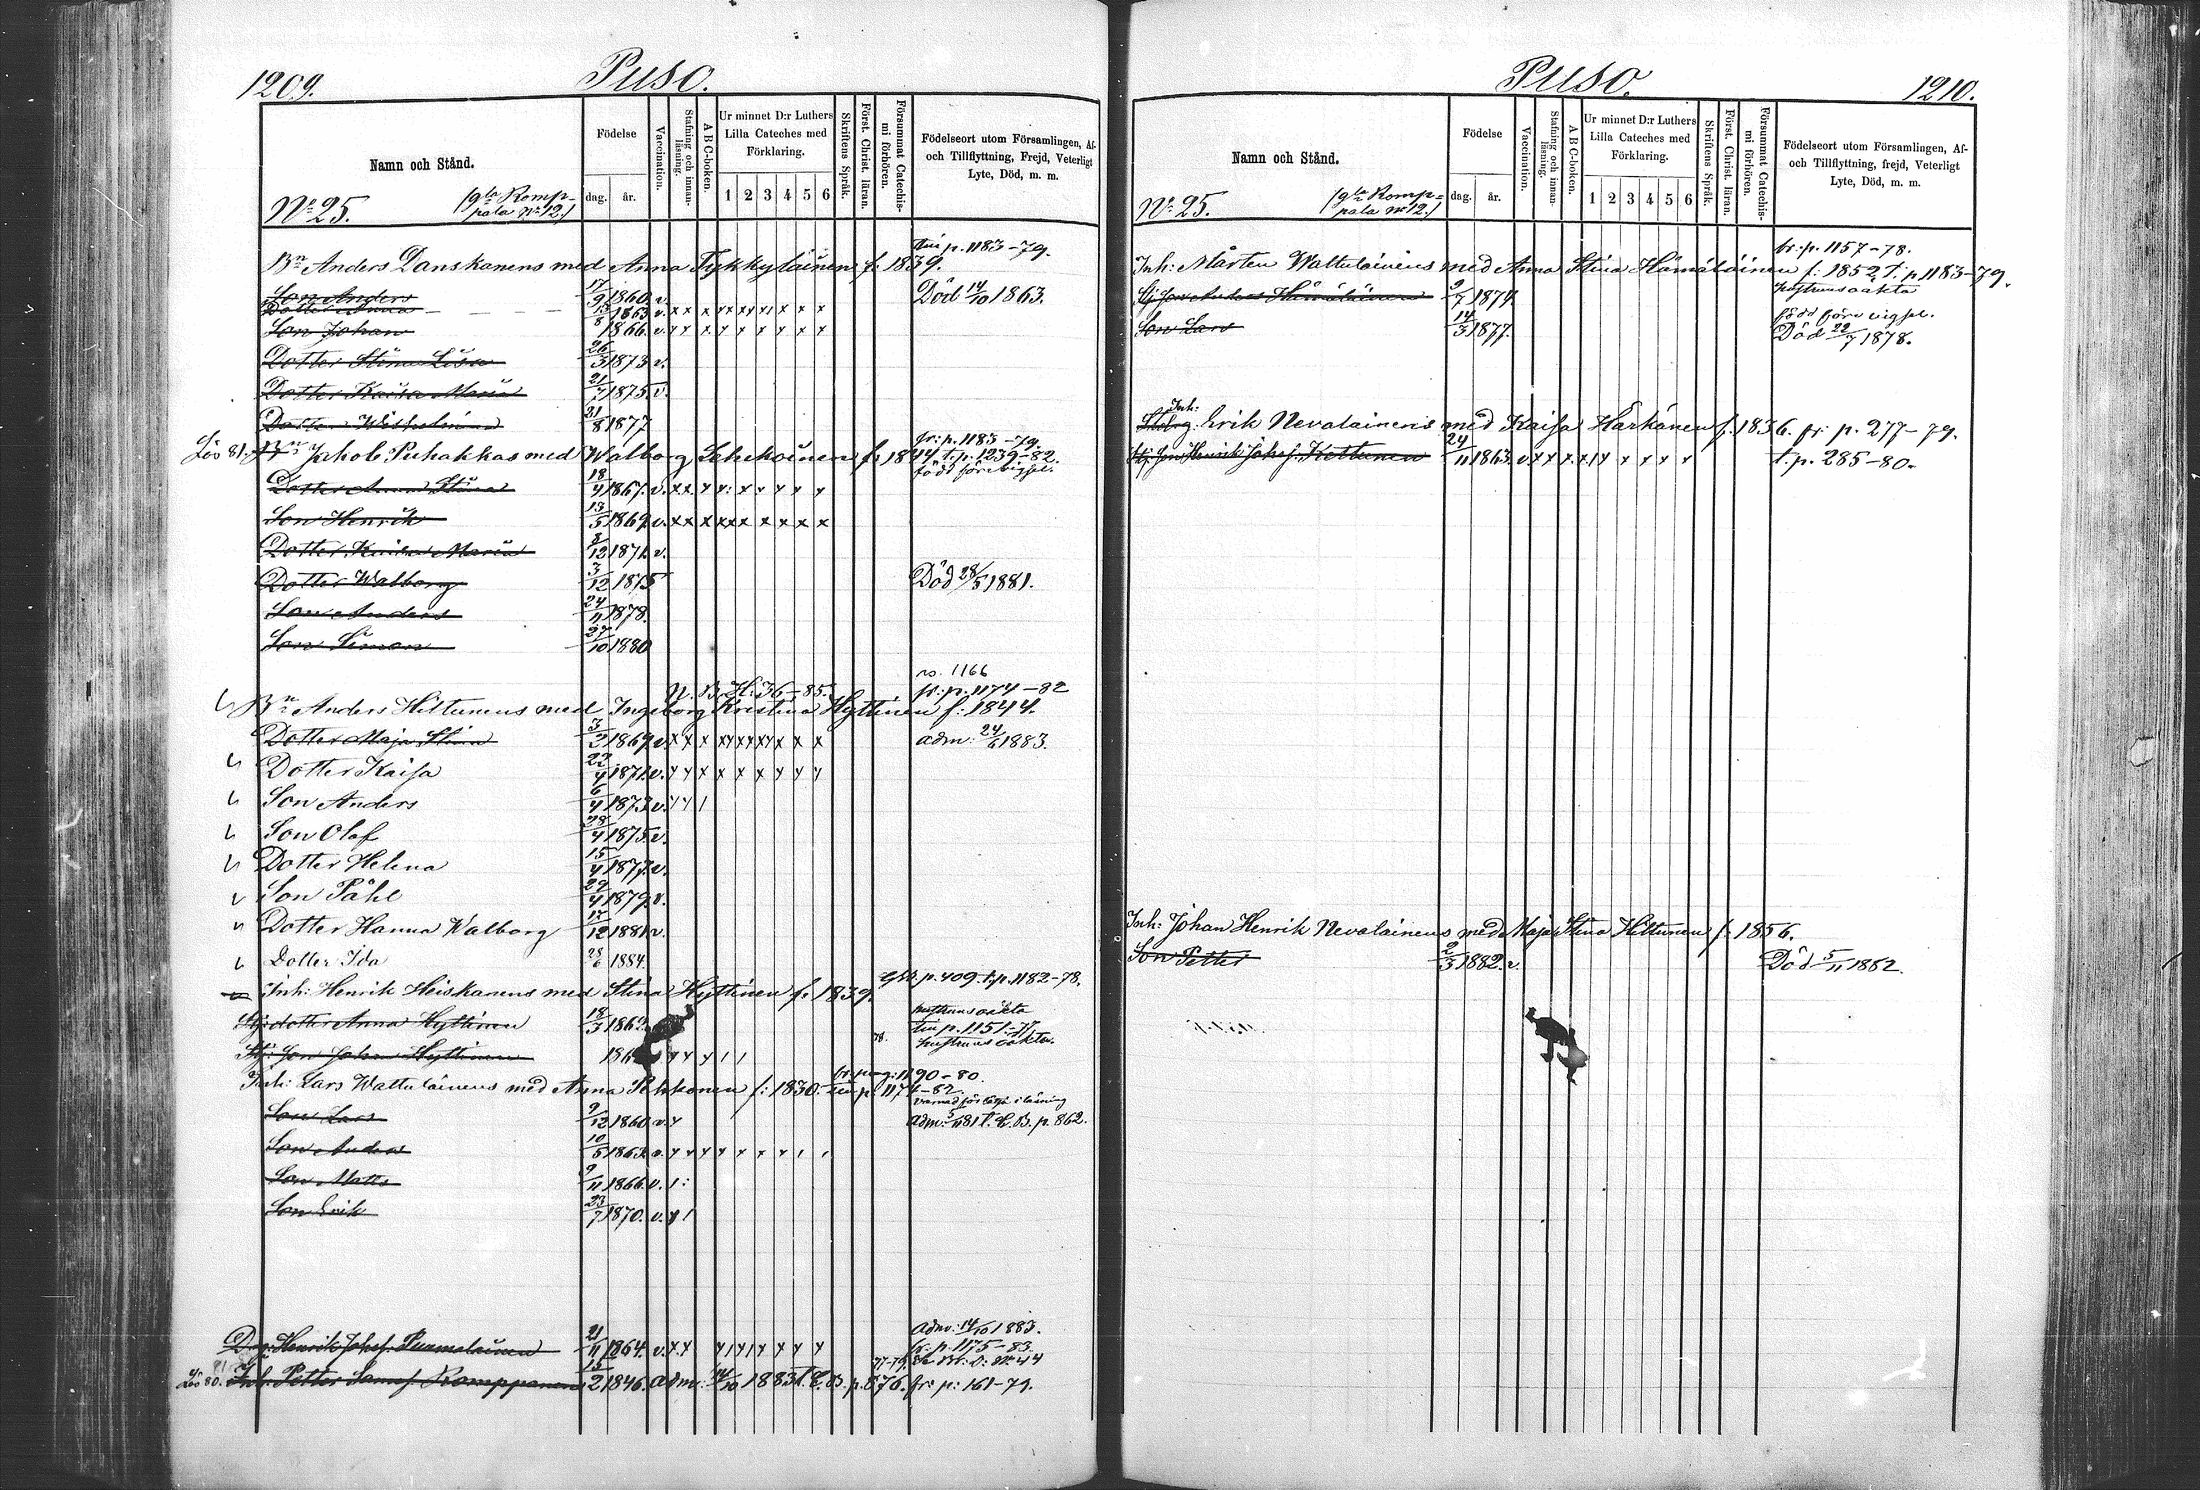 1209.
Puso.
Namn och Stånd.
Födelse
dag.
år.
Vaccination.
Stafning och innanläsning.
A B C-boken.
Ur minnet D:r Luthers Lilla Cateches med Förklaring.
1 2 3 4 5 6
Skriftens Språk.
Först. Christ. läran.
Försummat Catechismi förhören.
Födelseort utom Församlingen, Af- och Tillflyttning, Frejd, Veterligt Lyte, Död, m. m.
N:o 25. (gla Romppala No 12.)
p. 1183-79.
Bn Anders Danskanens med Anna Tykkyläinen f: 1839.
Son Anders 17/9 1860. v. Död 14/10 1863.
Dotter Anna 13/8 1863 v. x x x x x x x x x x
Son Johan 1866. v.
Dotter Stina Lisa 26/3 1873 v.
Dotter Kaisa Maria 21/7 1875. v.
Dotter Wilhelmina 31/8 1877
fr: p. 1183-79.
Bn Jakob Puhakkas med Walborg f: 1844 t. p. 1239-82.
född före vigsl.
Dotter Anna Stina 18/4 1867. v.
Son Henrik 13/5 1869. v.
Dotter Kaisa Maria 8/12 1871. v.
Dotter Walborg 3/12 1875 Död 28/5 1881.
Son Anders 24/11 1878.
Son Simon 27/10 1880
1166
N. B. H. 36-85. fr. p. 1174-82
Bn Anders Hiltunens med Ingeborg Kristina Hyttinen f: 1844.
Dotter Maja Stina 3/2 1869 v. adm: 24/6 1883.
Dotter Kaisa 22/4 1871. v.
Son Anders 6/4 1873 v.
Son Olof 28/4 1875 v.
Dotter Helena 15/4 1877. v.
Son Påhl 29/4 1879. v.
Dotter Hanna Walborg 17/12 1881 v.
Dotter Ida 28/6 1884.
p. 409. t. p. 1182-78.
Inh: Henrik Heiskanens med Stina Hyttinen f: 1839.
Stj: dotter Anna Hyttinen 18/3 hustruns oäkta
p. 1151-77
Stj: Son Johan Hyttinen hustruns oäkta.
1190-80.
Inh: Lars Wattulainens med Anna Pekkonen f: 1830. p. 1174-82.
Son Lars 9/12 1860 v. adm: 5/11 81 t. L. B. p. 862.
Son Anders 10/5 1863. v.
Son Matts 9/11 1866. v.
Son Erik 23/7 1870. v.
adm: 14/10 1883.
Dr: Henrik Johs. Purmolainen 21/11 1864. v. fr: p. 1175-83.
Inh. Petter Samf. Romppanen 15/2 1846. adm: 14/10 1883 t. L. B. p. 876. fr: p: 161-79.
Puso.
1210.
Namn och Stånd.
Födelse
dag.
år.
Vaccination.
Stafning och innanläsning.
A B C-boken.
Ur minnet D:r Luthers Lilla Cateches med Förklaring.
1 2 3 4 5 6
Skriftens Språk.
Först. Christ. läran.
Försummat Catechismi förhören.
Födelseort utom Församlingen, Af- och Tillflyttning, frejd, Veterligt Lyte, Död, m. m.
N:o 25. (gla Romppala No 12.)
fr. p. 1157-78.
Inh: Mårten Wattulainens med Anna Stina Hämäläinen f: 1852 t. p 1183-79.
Stj Son Anders Hämäläinen 9/7 1874 hustruns oäkta
född före vigsl.
Son Lars 14/3 1877. Död 22/7 1878.
Inh: Erik Nevalainens med Kaisa Härkänen f. 1836. fr. p. 277-79.
Stj: Son Henrik Johs. Kettunen 24/11 1863. v. t. p. 285-80.
Inh: Johan Henrik Nevalainens med Maja Stina Hiltunen f: 1856.
Son Petter 2/3 1882. v. Död 5/11 1882.